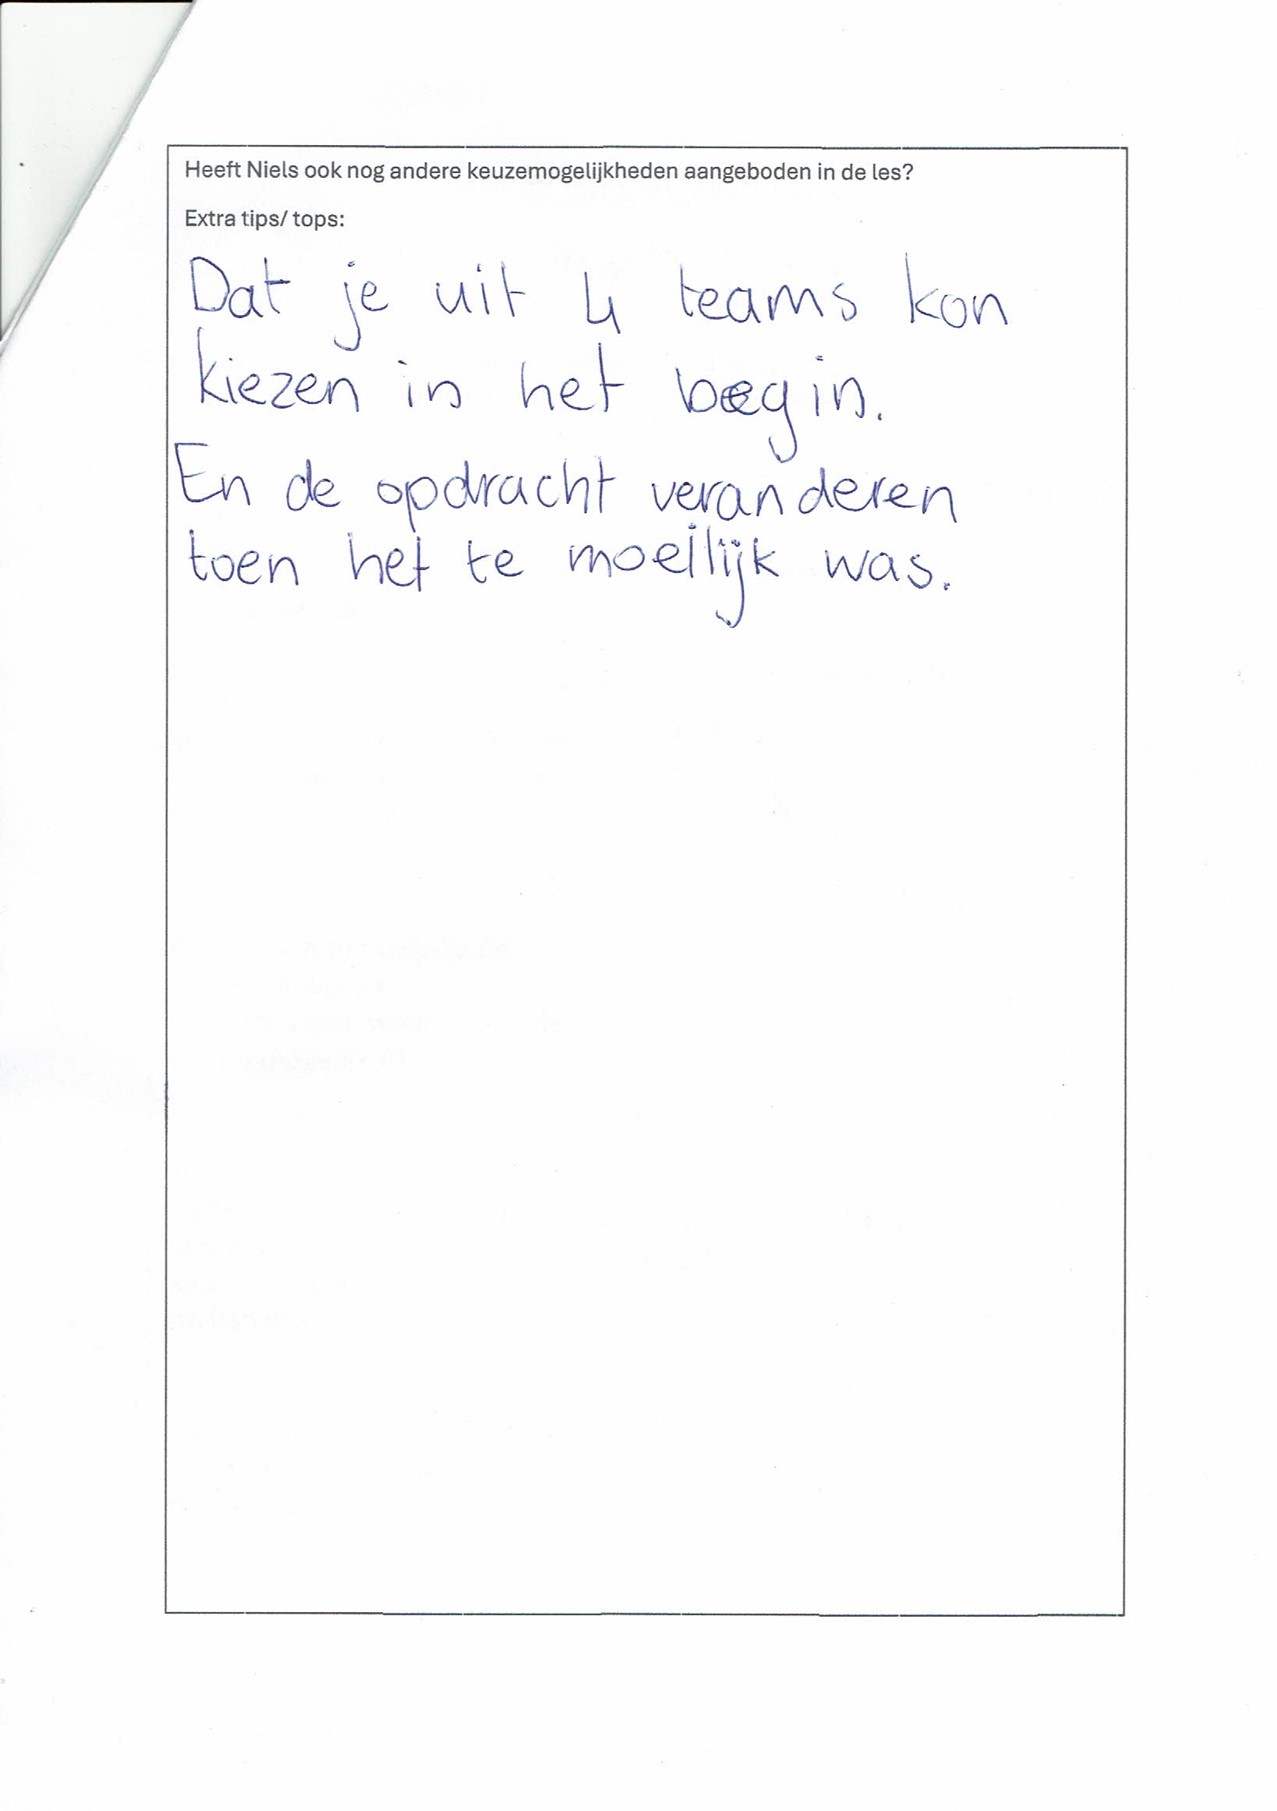 Heeft Niels ook nog andere keuzemogelijkheden aangeboden in de les?
Extra tips/ tops:
Dat je uit 4 teams kon
kiezen in het begin.
En de opdracht veranderen
toen het te moeilijk was.